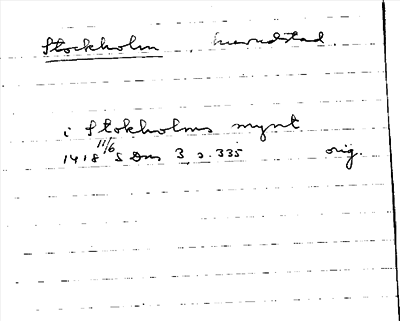 Stockholm huvudstad.
i Stokholms mynt
1418 11/6 S Dns 3 s. 335 orig.